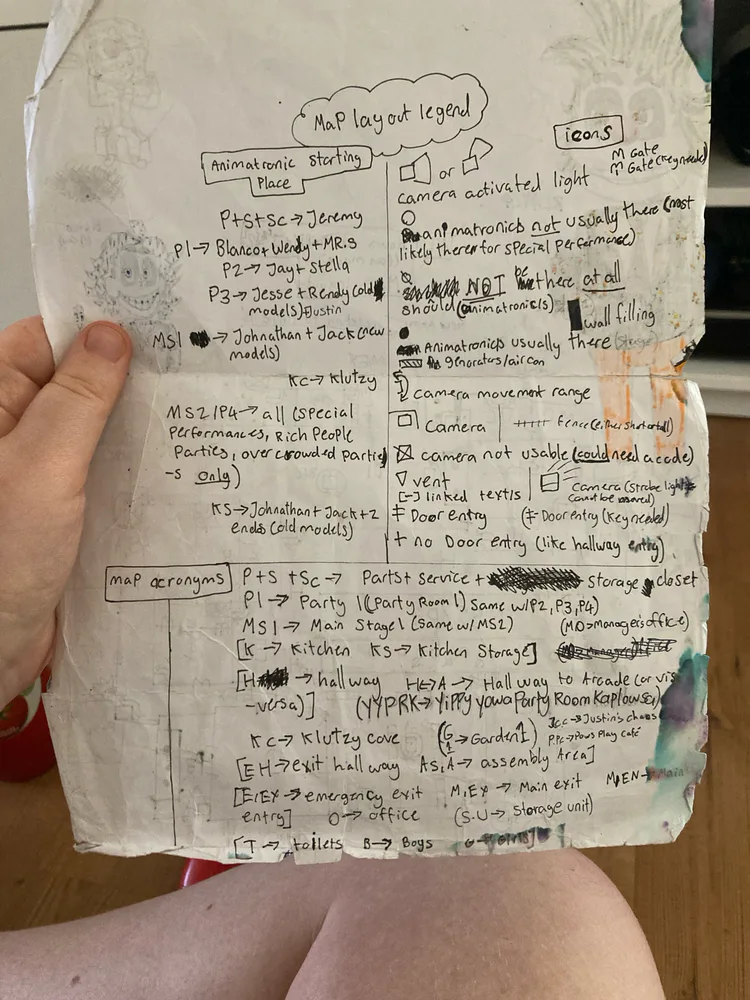 Map layout legend
Animatronic Starting Place
P+S+Sc → Jeremy
P1 → Blanco + Wendy + MR.S
P2 → Jay + Stella
P3 → Jesse + Rendy (old models) + Justin
MS1 → Johnathan + Jack (new models)
KC → Klutzy
MS2/P4 → all (special
Performances, Rich People
Parties, overcrowded partie
-s only)
KS → Johnathan + Jack + 2
endos (old models)
icons
M Gate
Gate (Key needed)
or
camera activated light
animatronics not usually there (most
likely there for special performance)
NOT be there at all
should (animatronics)
wall filling
Animatronics usually there (stage)
generators/air con
camera movement range
Camera
fence (either short or tall)
camera not usable (could need a code)
vent
[-] linked texts
Camera (strobe light
cannot be moved)
Door entry
Door entry (key needed)
+ no Door entry (like hallway entry)
map acronyms
P+S+Sc → Parts + service + storage closet
P1 → Party 1 (Party Room 1) same w/P2, P3, P4)
MS1 → Main Stage 1 (same w/MS2)
(MO → manager's office)
[K → Kitchen KS → Kitchen Storage]
[H → hallway H↔A → Hallway to Arcade (or vis
-versa)]
(YYPRK → Yippy yowa Party Room Kaplowsa)
KC → Klutzy cove
(G1 → Garden 1)
J.C.C → Justin's chaos
P.P.C → Paws Play café
[EH → exit hallway AS,A → assembly Area]
[E/EX → emergency exit
entry]
M,EX → Main exit
M,EN → Main
O → office
(S.U → Storage unit)
[T → toilets B → Boys G → Girls]